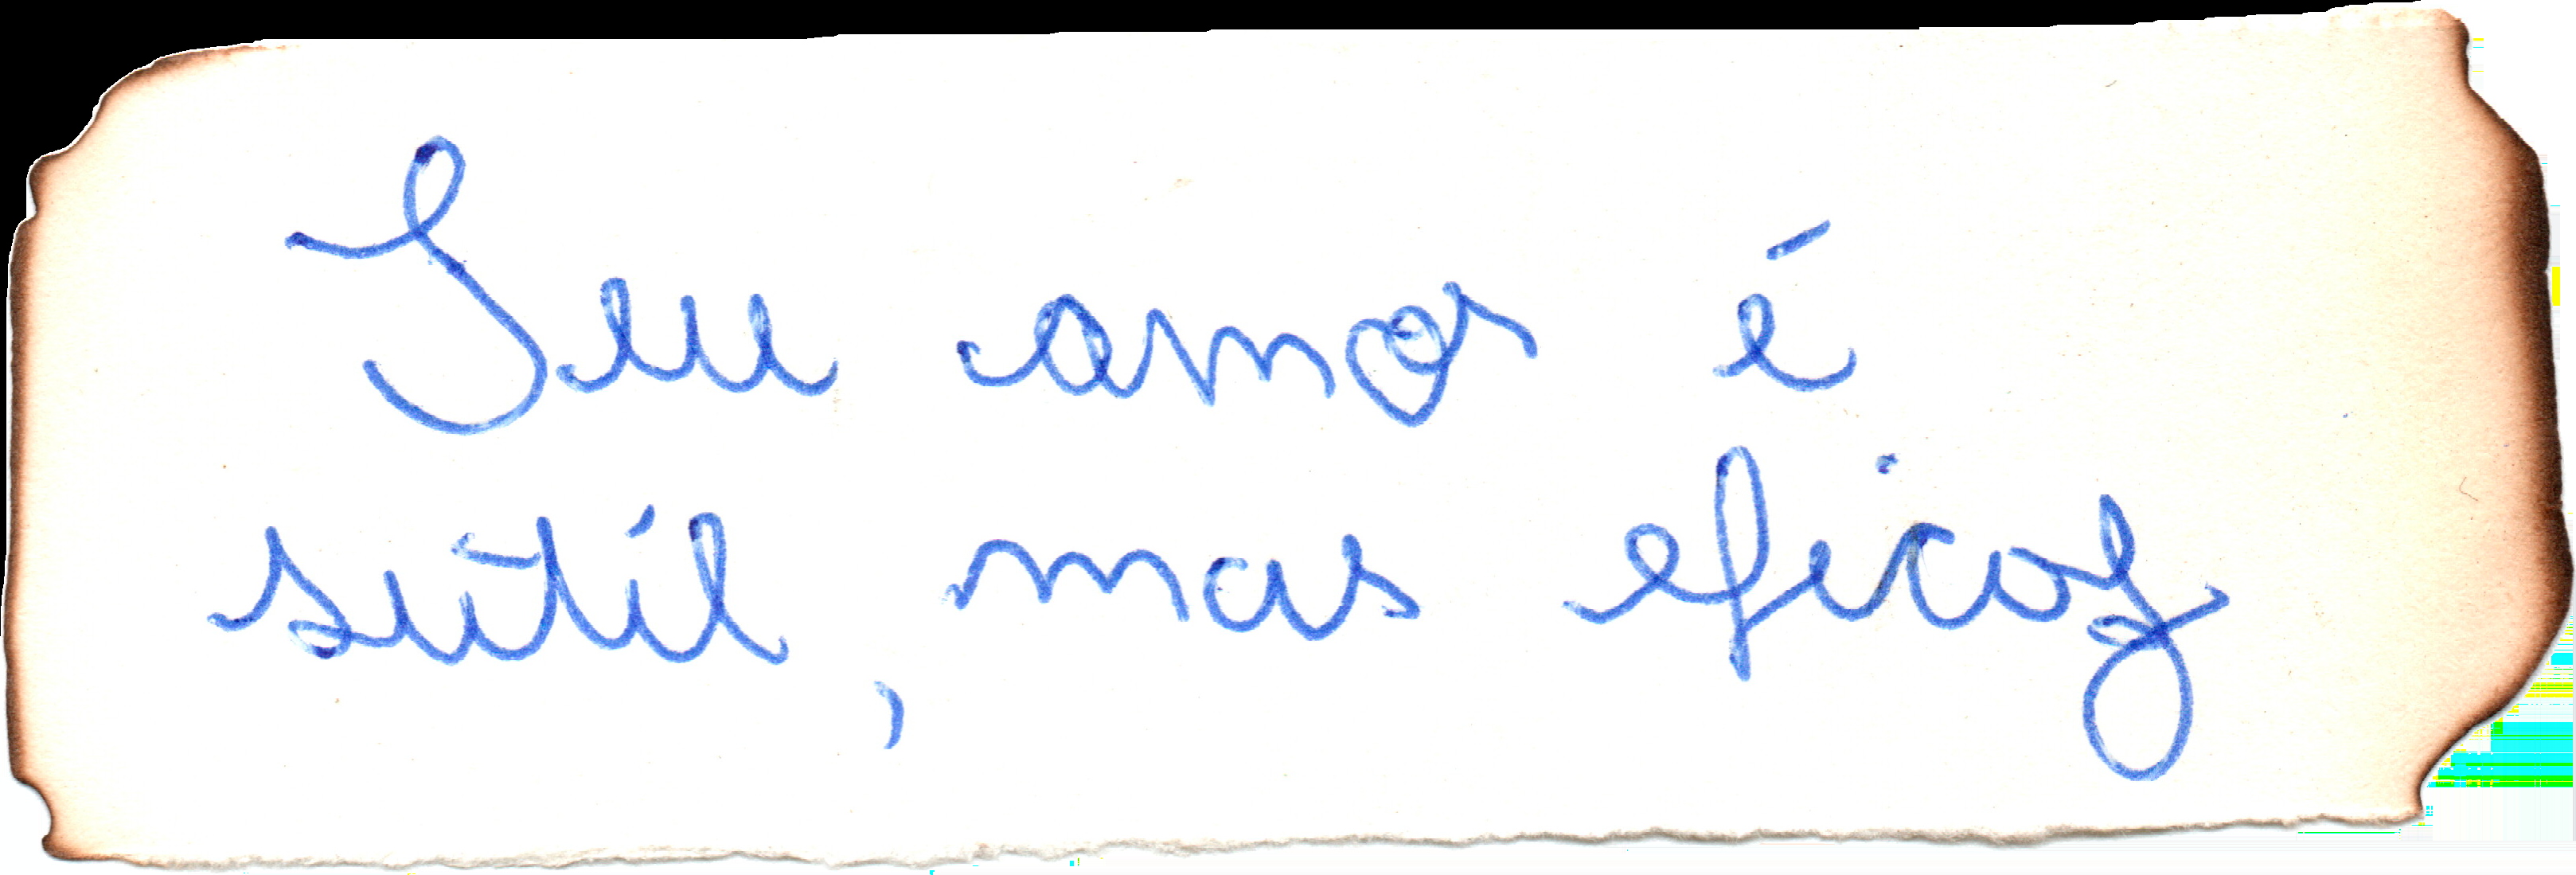 Seu amor é
sutíl, mas eficaz